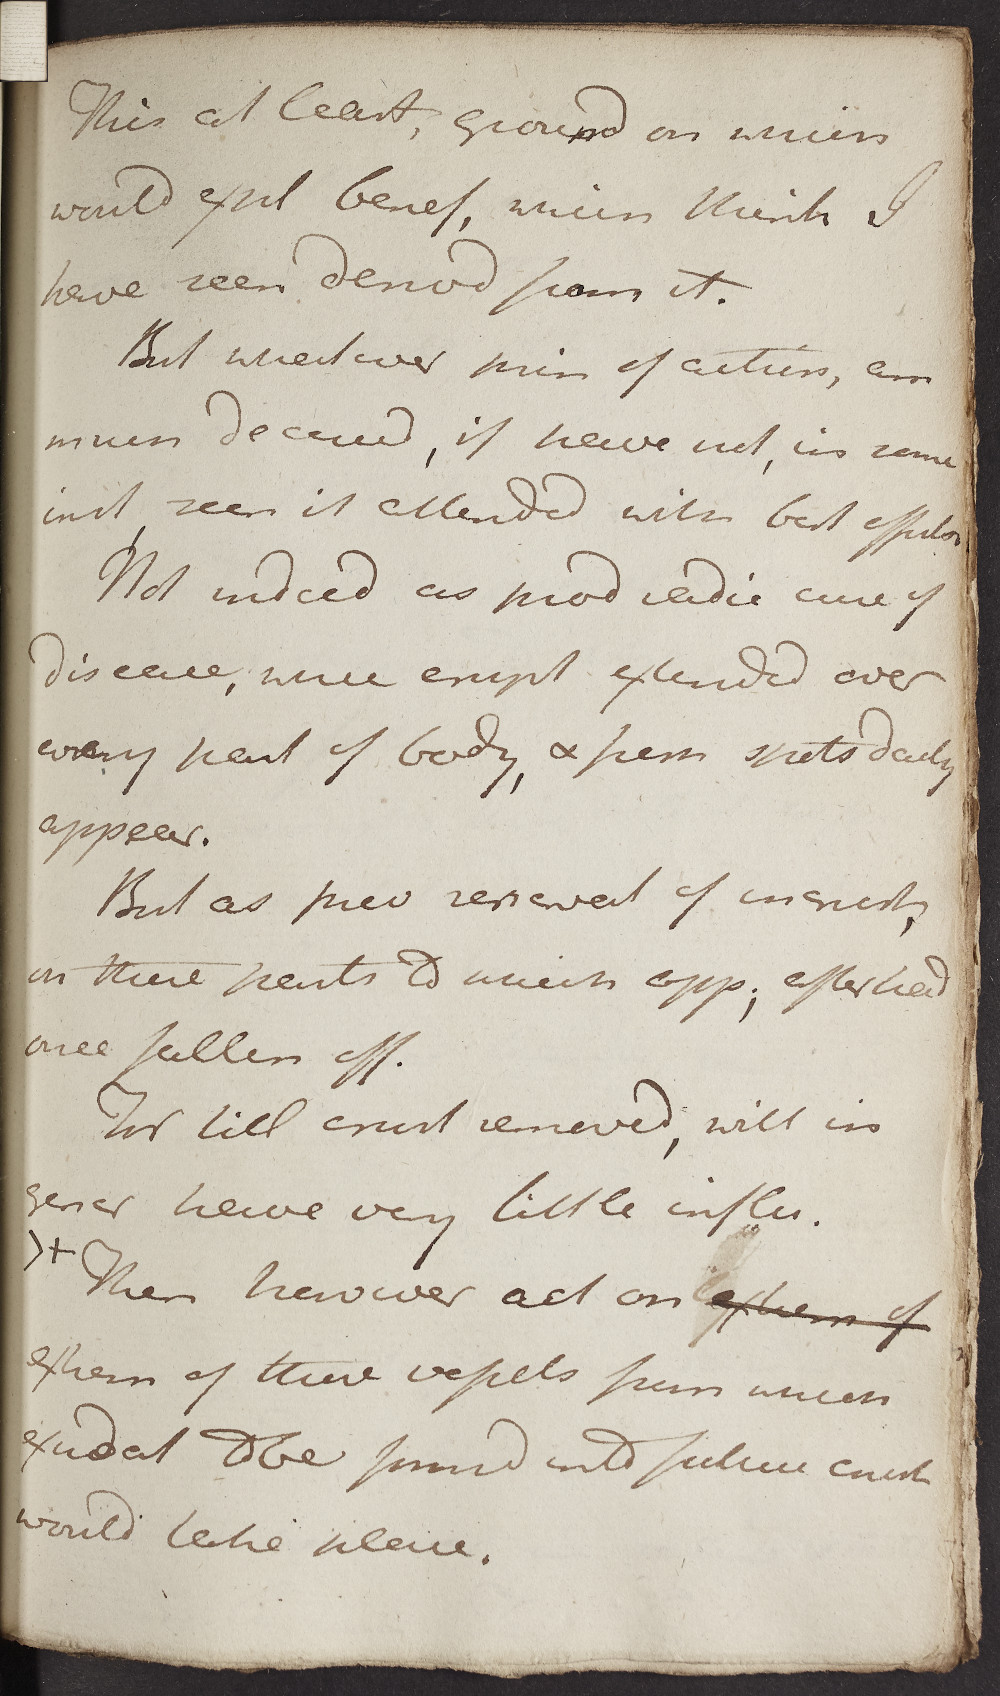 This at least, ground on which
would expt benef, which think I
have seen derivd from it.
But whatever prin of action, am
much deceivd, if have not, in some
inst, seen it attended with best effects
Not indeed as prod radic cure of
disease, where erupt extended over
every part of body, & fresh spots daily
appear.
But as prev renewal of incrust,
on those parts to which app; after had
once fallen off.
For till crust removed, will in
gener have very little influ.
>+ Then however act on extrem of
extrem of those vessels from which
exudat to be formd into future crust
would take place.